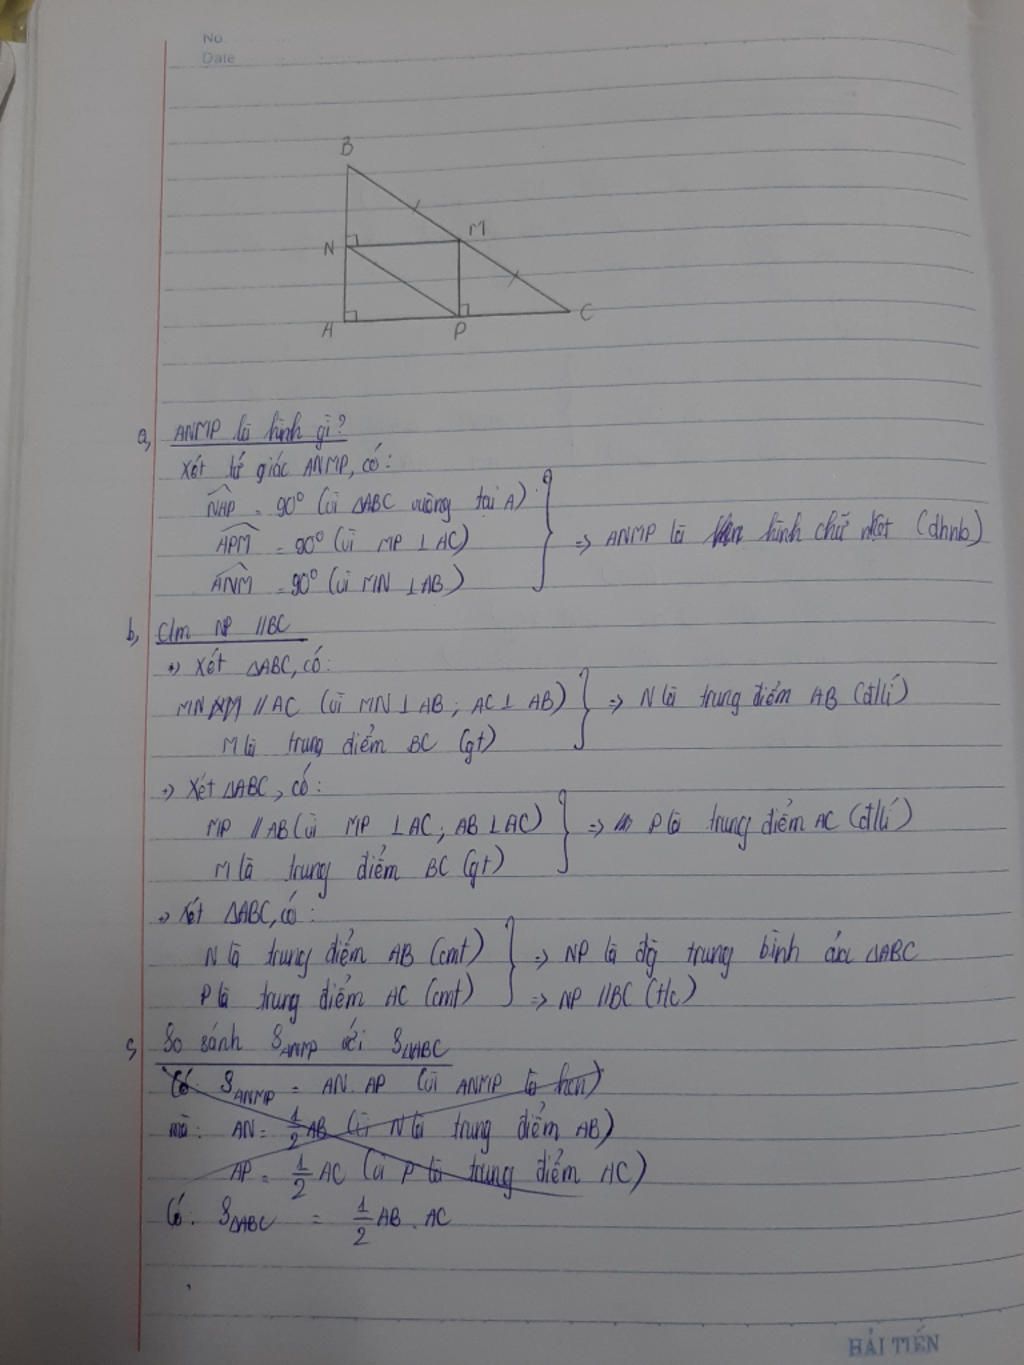 No.
Date
B
N
M
A
P
C
a, ANMP là hình gì?
Xét tứ giác ANMP, có:
NAP = 90° (vì ΔABC vuông tại A)
APM = 90° (vì MP ⊥ AC)
ANM = 90° (vì MN ⊥ AB)
⇒ ANMP là hình chữ nhật (dhnb)
b, C/m NP // BC
Xét ΔABC, có:
MN // AC (vì MN ⊥ AB; AC ⊥ AB)
M là trung điểm BC (gt)
⇒ N là trung điểm AB (đ/lí)
Xét ΔABC, có:
MP // AB (vì MP ⊥ AC; AB ⊥ AC)
M là trung điểm BC (gt)
⇒ P là trung điểm AC (đ/lí)
Xét ΔABC, có:
N là trung điểm AB (cmt)
P là trung điểm AC (cmt)
⇒ NP là đg trung bình của ΔABC
⇒ NP // BC (t/c)
c, So sánh SANMP với SΔABC
Có: SANMP = AN . AP (vì ANMP là hcn)
mà: AN = 1/2 AB (vì N là trung điểm AB)
AP = 1/2 AC (vì P là trung điểm AC)
Có: SΔABC = 1/2 AB . AC
HẢI TIẾN